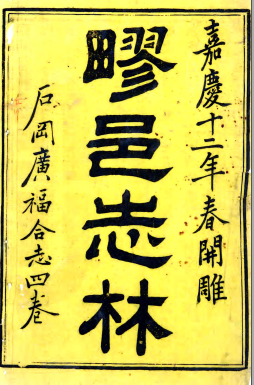 嘉慶十二年春開雕
疁邑志林
石岡廣福合志四卷